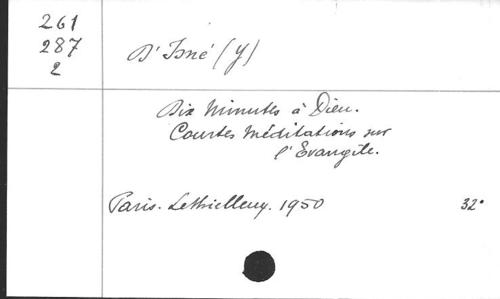 261
287
2
D'Isné (Y)
Dix Minutes à Dieu.
Courtes méditations sur
l'Evangile.
Paris. Lethielleux. 1950 32°